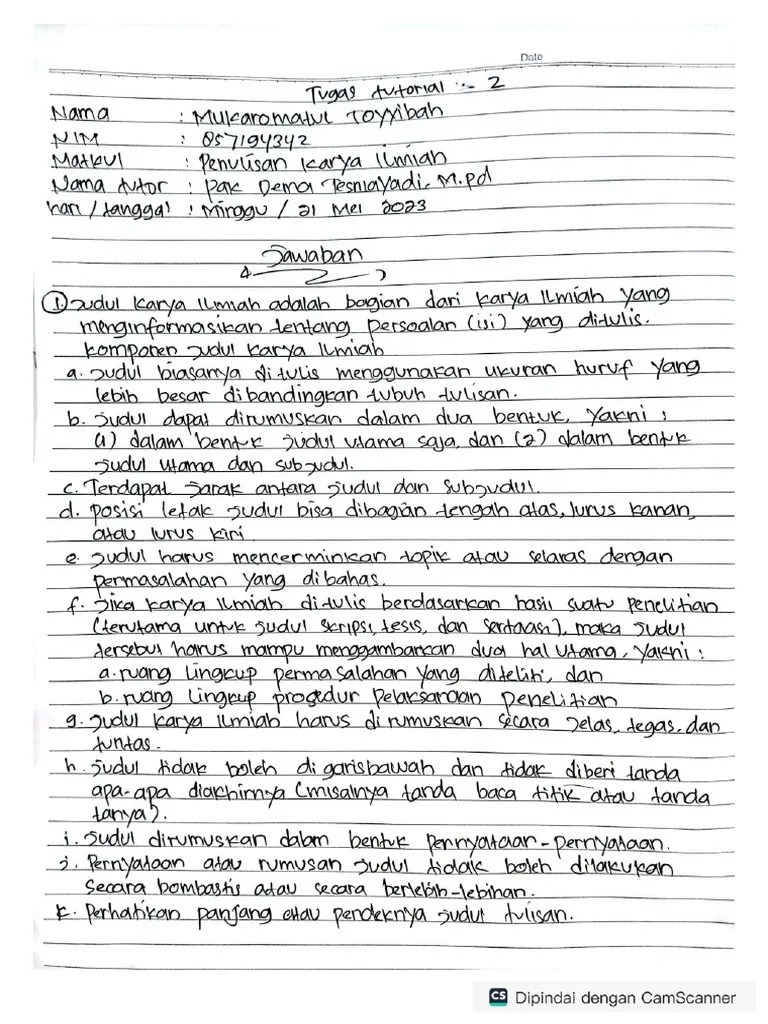 Date
Tugas tutorial :- 2
Nama : Mukaromatul Toyyibah
NIM : 857194342
Matkul : Penulisan Karya Ilmiah
Nama tutor : Pak Dema Tesniayadi, M.pd
hari / tanggal : Minggu / 21 Mei 2023
Jawaban
1. Judul karya Ilmiah adalah bagian dari karya Ilmiah yang
menginformasikan tentang persoalan (isi) yang ditulis.
komponen judul karya Ilmiah
a. Judul biasanya ditulis menggunakan ukuran huruf yang
lebih besar dibandingkan tubuh tulisan.
b. Judul dapat dirumuskan dalam dua bentuk, yakni :
(1) dalam bentuk judul utama saja, dan (2) dalam bentuk
judul utama dan subjudul.
c. Terdapat jarak antara judul dan subjudul.
d. posisi letak judul bisa dibagian tengah atas, lurus kanan,
atau lurus kiri.
e. Judul harus mencerminkan topik atau selaras dengan
permasalahan yang dibahas.
f. Jika karya ilmiah ditulis berdasarkan hasil suatu penelitian
(terutama untuk judul skripsi, tesis, dan sertasi), maka judul
tersebut harus mampu menggambarkan dua hal utama, yakni :
a. ruang lingkup permasalahan yang diteliti, dan
b. ruang lingkup prosedur pelaksanaan penelitian
g. Judul karya ilmiah harus dirumuskan secara jelas, tegas, dan
tuntas.
h. Judul tidak boleh digarisbawah dan tidak diberi tanda
apa-apa diakhirnya (misalnya tanda baca titik atau tanda
tanya).
i. Judul dirumuskan dalam bentuk pennyataan-pernyataan.
j. Pernyataan atau rumusan judul tidak boleh dilakukan
secara bombastis atau secara berlebih-lebihan.
k. Perhatikan panjang atau pendeknya judul tulisan.
CS Dipindai dengan CamScanner